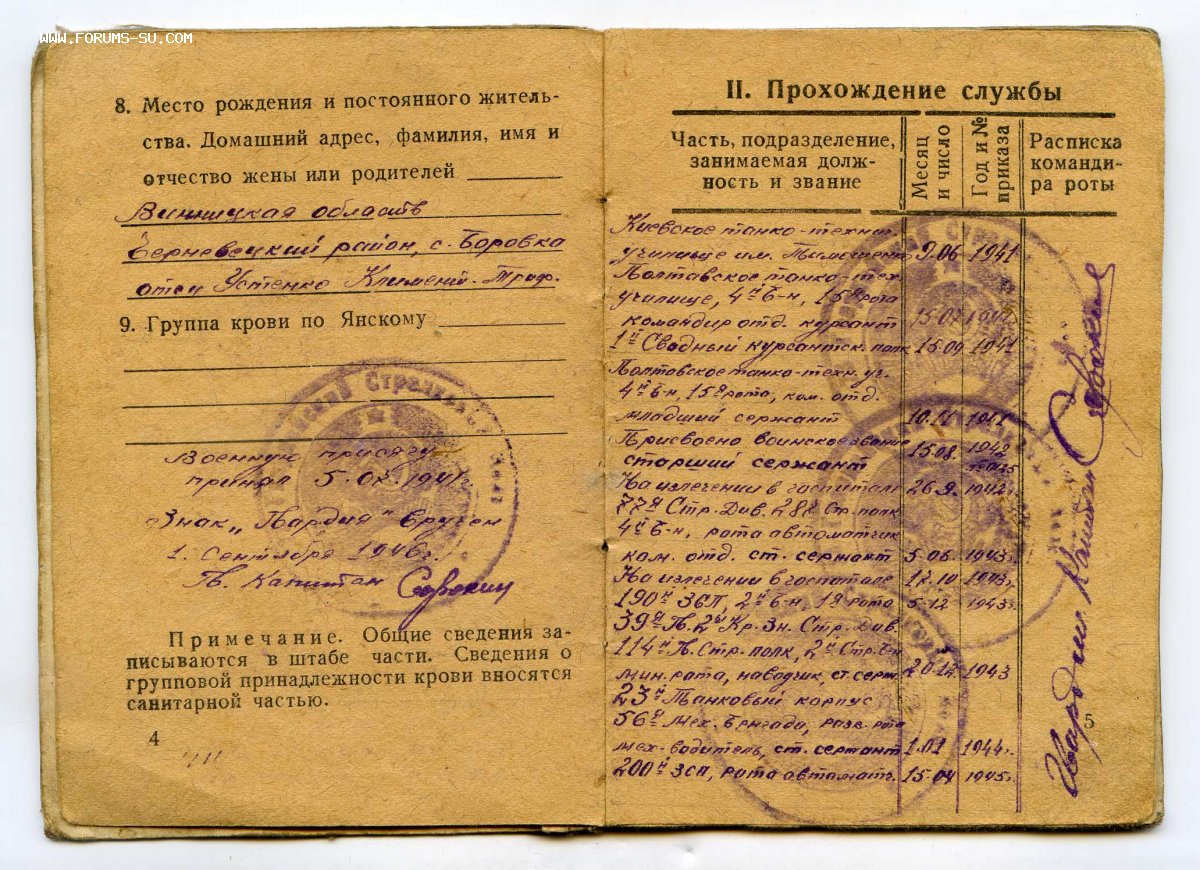 WWW.FORUMS-SU.COM
8. Место рождения и постоянного житель-
ства. Домашний адрес, фамилия, имя и
отчество жены или родителей
Винницкая область
Черневецкий район, с. Боровка
отец Устенко Климентий Триф.
9. Группа крови по Янскому
Военную присягу
принял 5.07.1941г.
Знак „Гвардия" вручен
1 Сентября 1946г.
Гв. Капитан Сорокин
Примечание. Общие сведения за-
писываются в штабе части. Сведения о
групповой принадлежности крови вносятся
санитарной частью.
4
II. Прохождение службы
Часть, подразделение, занимаемая долж-
ность и звание
Месяц и число
Год и № приказа
Расписка команди-
ра роты
Киевское танко-технич.
училище им. Тимошенко 9.06 1941
Полтавское танко-тех.
училище, 4й б-н, 15я рота
командир отд. курсант 15.07 1941
1й Сводный курсантск. полк 15.09 1941
Полтавское танко-техн. уч.
4й б-н, 15я рота, ком. отд.
младший сержант 10.11 1941
Присвоено воинское звание
старший сержант 15.08 1942
На излечении в госпитале 26.9. 1942г.
77я Стр. Див. 28 Стр. полк
4й б-н, рота автоматчик
ком. отд. ст. сержант 5.06. 1943г.
На излечении в госпитале 17.10 1943г.
190й ЗСП, 2й б-н, 1я рота 5-12 1943г.
39я Гв. 2ды Кр. Зн. Стр. Див.
114й Гв. Стр. полк, 2й Стр. б-н
мин. рота, наводчик, ст. серж 20.12. 1943
23й Танковый корпус
56я мех. бригада, разв. рота
мех-водитель, ст. сержант 1.01 1944г.
200й ЗСП, рота автомат. 15-04 1945г.
Гвардии Капитан Сорокин
5